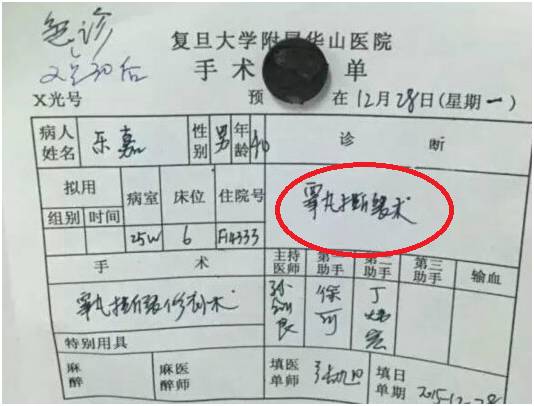 急诊
复旦大学附属华山医院
手术 单
X光号 预 在12月28日(星期一)
病人姓名 乐嘉 性别 男 年龄 40 诊 断
拟用 病室 床位 住院号
组别 时间
25W 6 F14333
睾丸挫断裂术
手 术 主持医师 第一助手 第二助手 第三助手 输血
睾丸挫断裂修补术
特别用具
麻醉 麻醉医师 填单医师 填单日期 2015-12-28